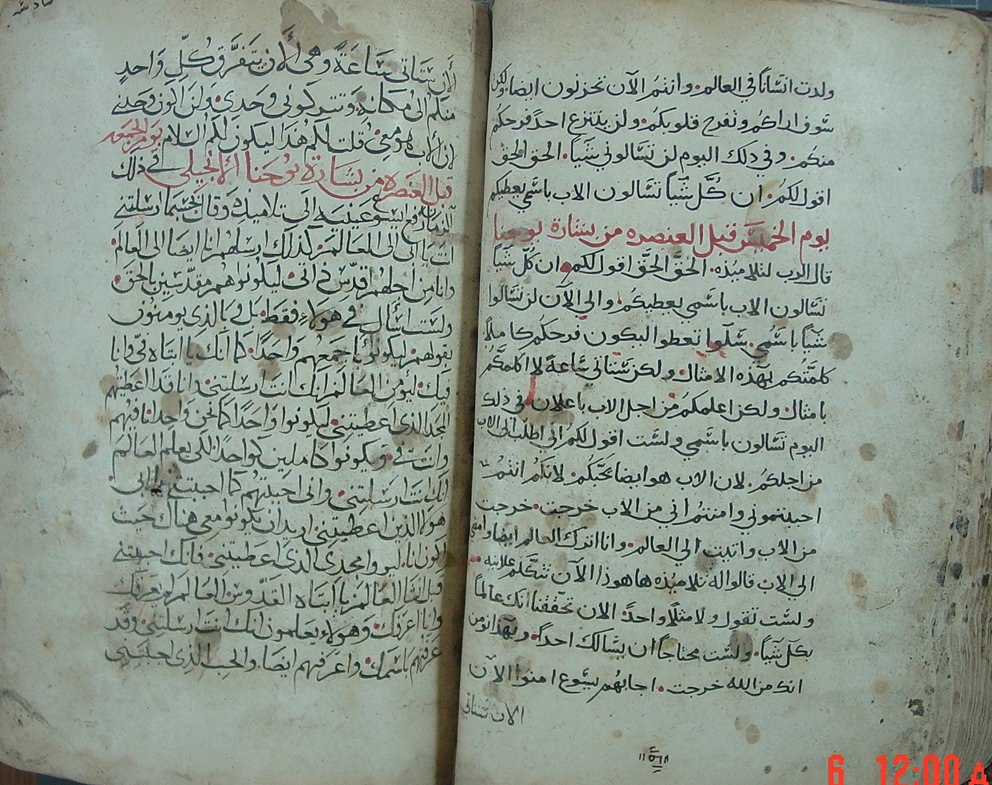 ولدت انسانًا في العالم. وانتم الآن تحزنون ايضا ولكن
سوف اراكم وتفرح قلوبكم. ولن ينتزع احدٌ فرحكم
منكم. وفي ذلك اليوم لن تسالوني شيا. الحق الحق
اقول لكم. ان كُلَّ شيًا تسالون الاب باسمي يعطيكم
يوم الخميس قبل العنصره من بشارة يوحنا
قال الرب لتلاميذه. الحقَّ الحقَّ اقول لكم ان كُلَّ شيًا
تسالون الاب باسمي يعطيكم. والي الآن لن تسالوا
شيًا باسمي. سلوا تعطوا ليكون فرحكم كاملًا
كلمتكم بهذه الامثال. ولكن ستاتي ساعة لا اكلمكم
بامثال ولكن اعلمكم من اجل الاب باعلان. في ذلك
اليوم تسالون باسمي ولست اقول لكم اني اطلب الي الاب
من اجلكم. لان الاب هو ايضا يحبّكم. لانكم انتم
احببتموني وامنتم اني من الاب خرجت. خرجت
من الاب واتيت الي العالم. وانا اترك العالم ايضا وامضي
الي الاب قالوا له تلاميذه ها هوذا الآن تتكلم علانيه
ولست تقول ولا مثلًا واحدًا الان تحققنا انك عالمًا
بكل شيًا. ولست محتاجًا ان يسالك احدًا. وبهذا نومن
انك من الله خرجت. اجابهم يسوع امنوا الآن
الان ستاتي
لأن ستاتي ساعَةً وهي ألآن يتفرَّق كُلّ واحدٍ
منكم الى مكانه وتتركوني وحدي. ولن اكون وحدي
لان الاب هو معي. قلت لكم هذا ليكون لكم السلام يوم الجمعه
قبل العنصره من بشارة يوحنا الانجيلي في ذلك
الزمان رفع يسوع عينيه الى تلاميذه وقال كما ارسلتني
انت يا ابي الى العالم. كذلك ارسلهم انا ايضا الى العالم.
وانا من اجلهم اقدّس ذاتي ليكونوا هم مقدسين بالحق.
ولست اسال في هولاء فقط بل في الذي يومنون
بقولهم ليكونوا باجمعهم واحدًا. كما انك يا ابتاه في وانا
فيك. ليومن العالم انك انت ارسلتني. وانا قد اعطيتهم
المجد الذي اعطيتني ليكونوا واحدًا كما نحن واحد انا فيهم
وانت في ويكونوا كاملين كواحدًا لكي يعلم العالم
انك انت ارسلتني. واني احببتهم كما احببتني يا ابي.
هولا الذين اعطيتني اريد ان يكونوا معي هناك حيث
اكون انا. ليروا مجدي الذي اعطيتني. فانك احببتني
قبل انشا العالم يا ابتاه القدّوس العالم لم يعرفك
وانا اعرفك. وهولاء يعلمون انك انت ارسلتني وقد
عرفتهم باسمك. واعرفهم ايضًا. والحب الذي احببتني
6 12:00 A